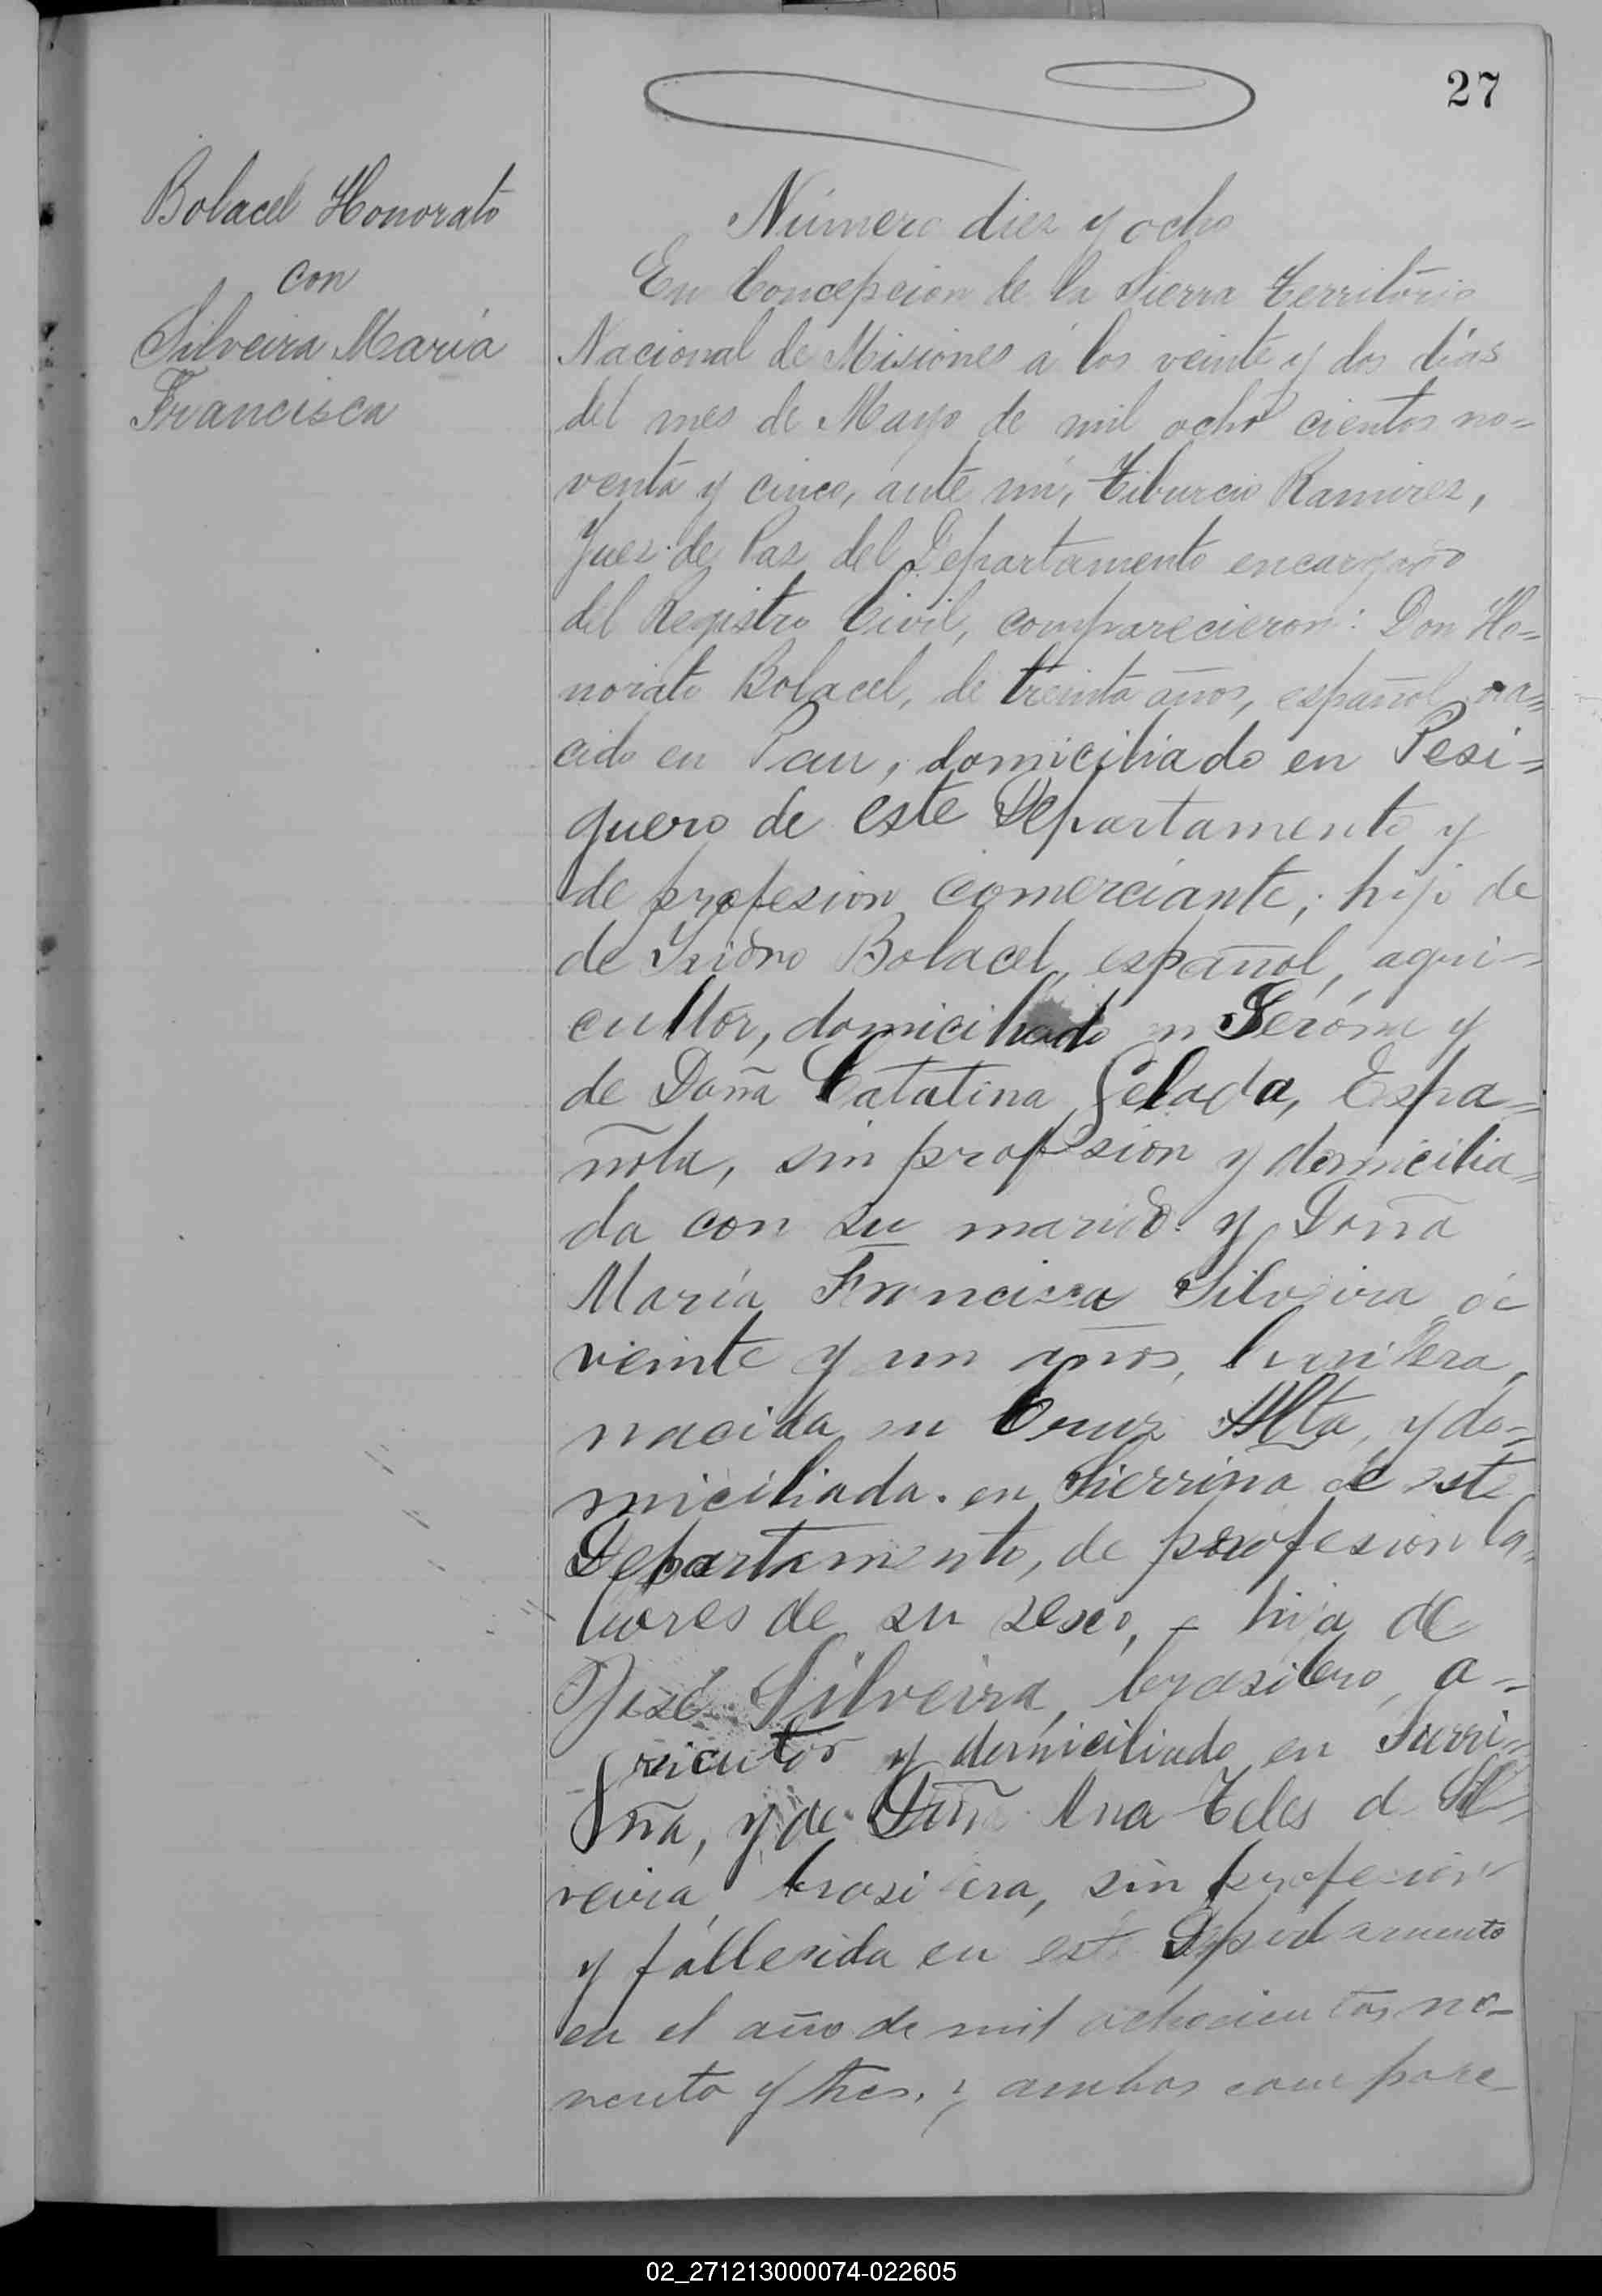 27
Bolacel Honorato
con
Silveira María
Francisca
Número diez y ocho
En Concepcion de la Sierra Territorio
Nacional de Misiones á los veinte y dos dias
del mes de Mayo de mil ocho cientos no=
venta y cinco, ante mi, Tiburcio Ramirez,
Juez de Paz del Departamento encargado
del Registro Civil, comparecieron: Don Ho=
norato Bolacel, de treinta años, español, na=
cido en Pau, domiciliado en Pesi=
guero de este Departamento y
de profesion comerciante; hijo de
de Isidro Bolacel, español, agri=
cultor, domiciliado en Jeróna y
de Doña Catalina Gelada, Espa=
ñola, sin profesion y domicilia=
da con su marido y Doña
María Francisca Silveira de
veinte y un años, brasilera,
nacida en Cruz Alta, y do=
miciliada en Sierrina de este
Departamento, de profesion la=
bores de su sexo, - hija de
José Silveira, brasilero, a-
gricutor y domiciliado en Sierri=
ña, y de Doña Ana Teles de Sil=
veira, brasilera, sin profesion
y fallecida en este Departamento
en el año de mil ochocientos no-
venta y tres, y ambos compare
02_271213000074-022605